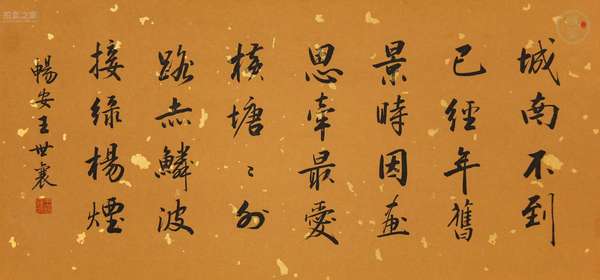 城南不到
已經年舊
景時因畫
思牽最愛
橫塘〻外
路赤鱗波
接綠楊煙
暢安王世襄